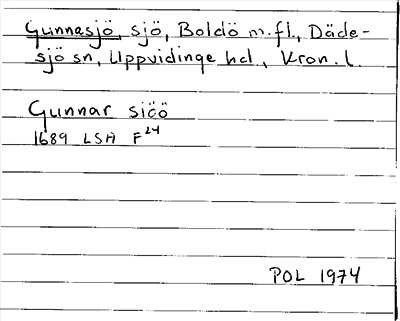 Gunnasjö, sjö, Boldö m.fl., Däde-
sjö sn, Uppvidinge hd, Kron. l.
Gunnar siöö
1689 LSA F24
POL 1974